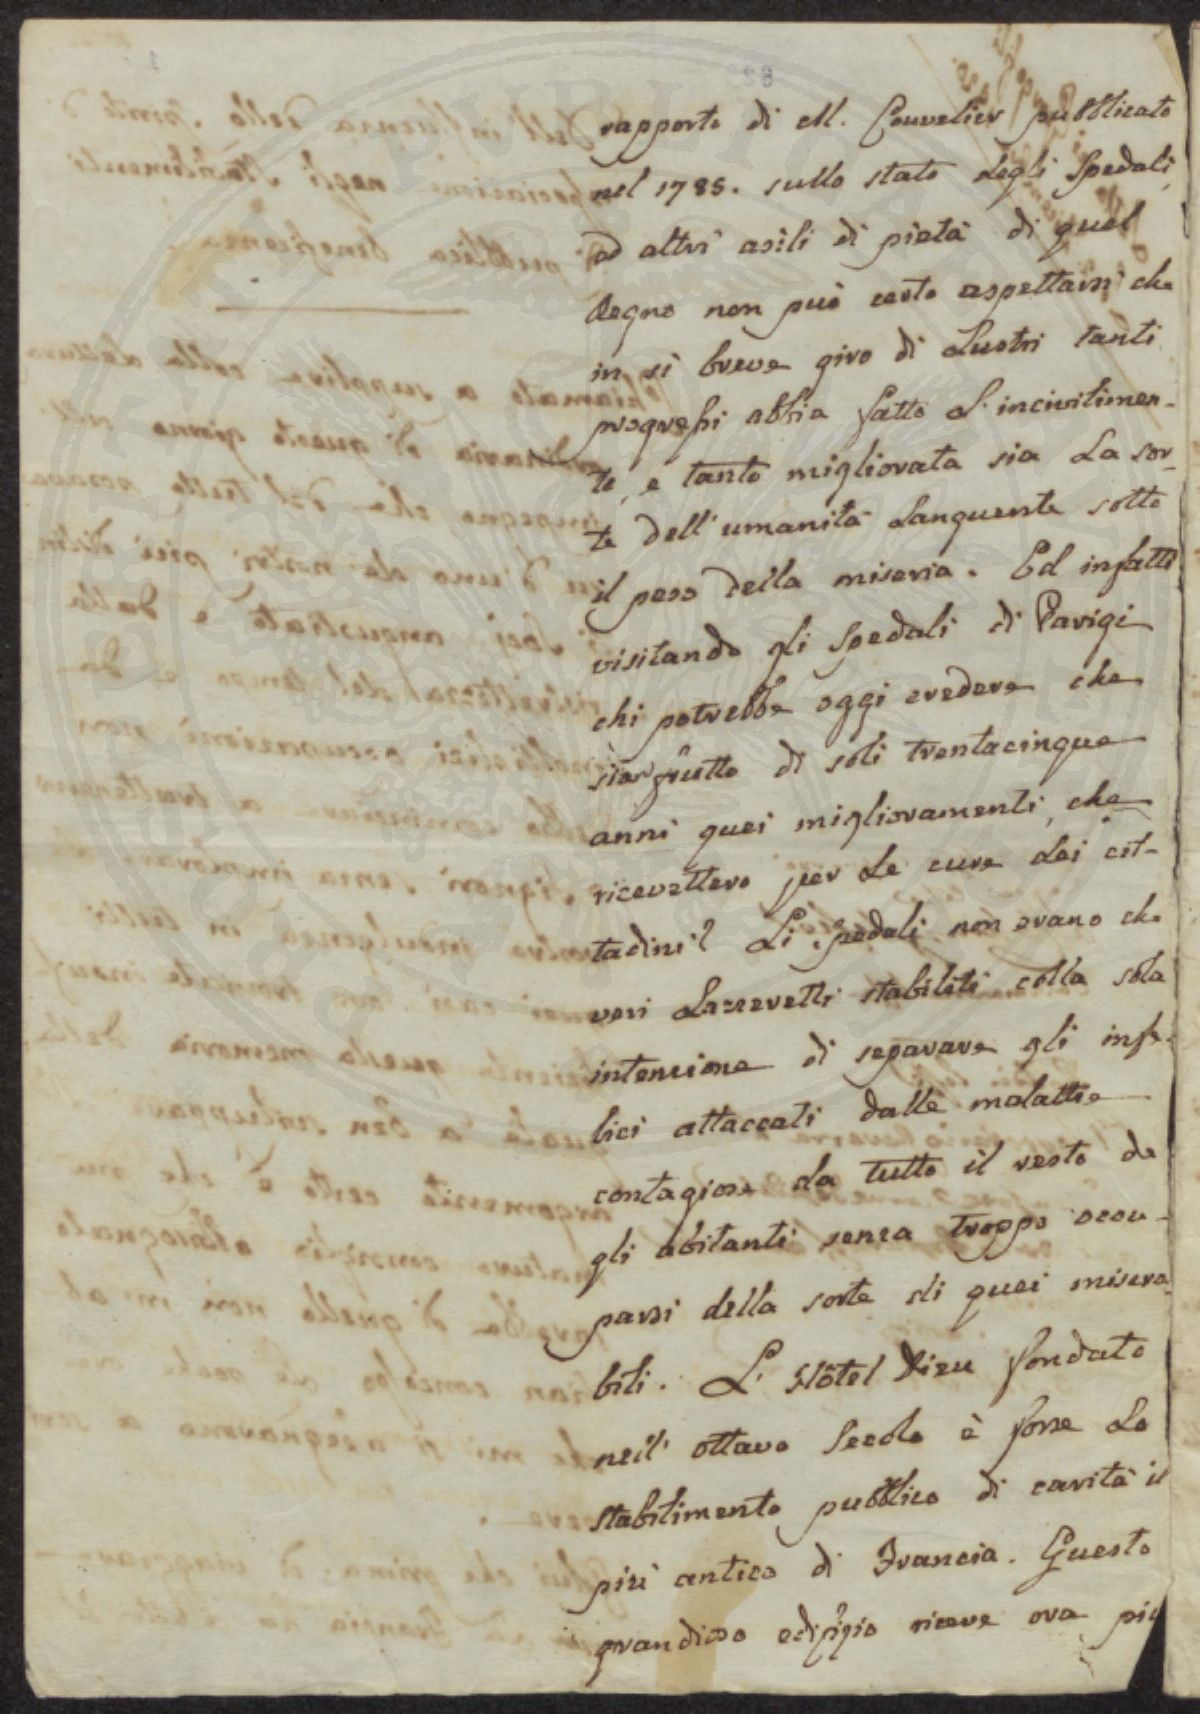 rapporto di M. Couvelier pubblicato
nel 1785. sullo stato degli Spedali,
ed altri asili di pietà di quel
Regno non può certo aspettarsi che
in sì breve giro di Lustri tanti
progressi abbia fatto L'incivilimen-
to, e tanto migliorata sia La sor-
te dell'umanità Languente sotto
il peso della miseria. Ed infatti
visitando gli Spedali di Parigi
chi potrebbe oggi credere che
sian frutto di soli trentacinque
anni quei miglioramenti, che
ricevettero per Le cure dei cit-
tadini? Li Spedali non erano che
veri Lazzeretti stabiliti colla sola
intenzione di separare gli infe-
lici attaccati dalle malattie
contagiose da tutto il resto de
gli abitanti senza troppo occu-
parsi della sorte di quei misera
bili. L'Hôtel Dieu fondato
nell'ottavo Secolo è forse Lo
stabilimento pubblico di carità il
più antico di Francia. Questo
grandioso edifizio riceve ora più